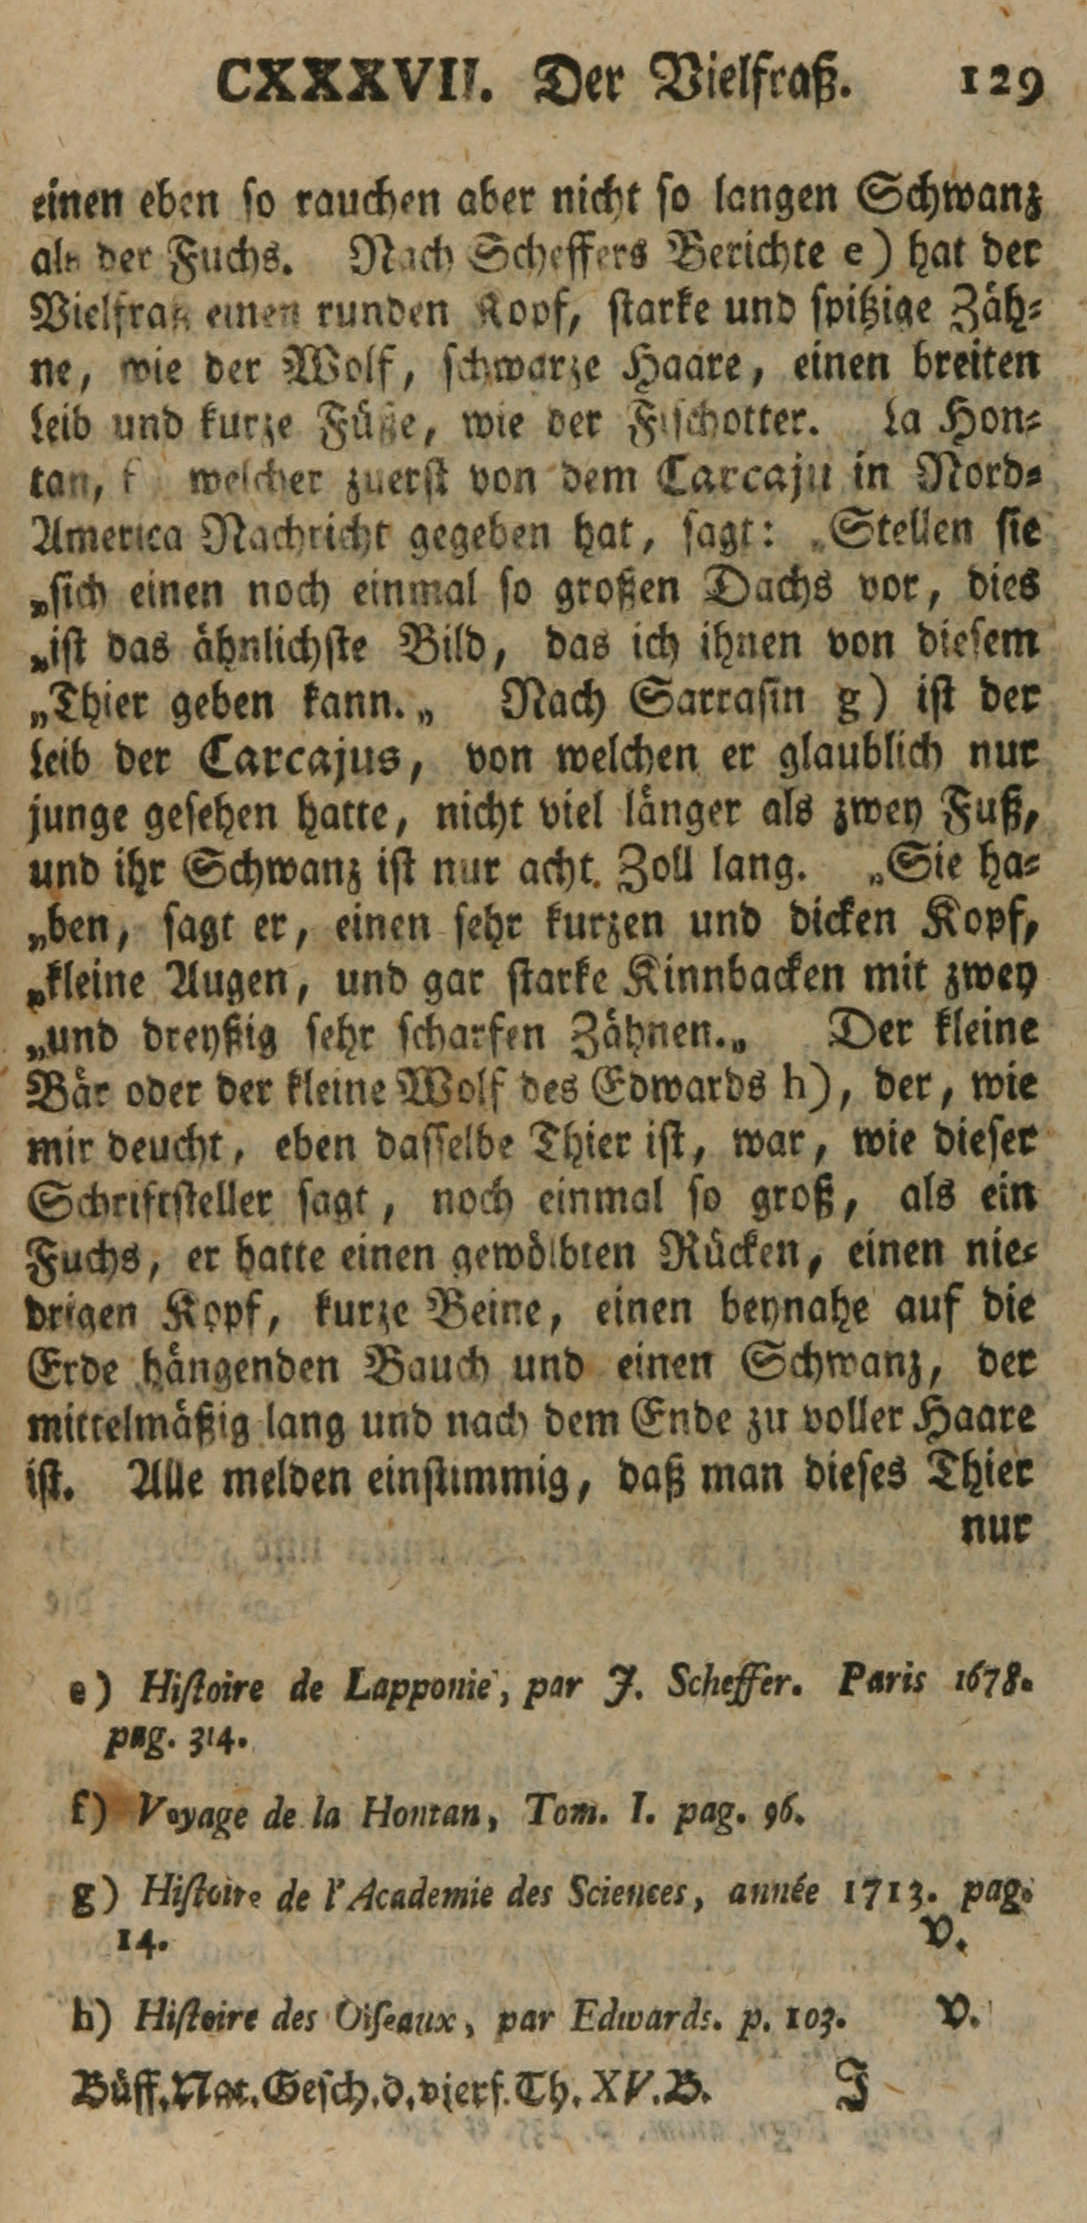 CXXXVII. Der Vielfraß. 129
einen eben so rauchen aber nicht so langen Schwanz
als der Fuchs. Nach Scheffers Berichte e) hat der
Vielfraß einen runden Kopf, starke und spitzige Zäh⸗
ne, wie der Wolf, schwarze Haare, einen breiten
Leib und kurze Füße, wie der Fischotter. La Hon⸗
tan, f welcher zuerst von dem Carcaju in Nord⸗
America Nachricht gegeben hat, sagt: „Stellen sie
„sich einen noch einmal so großen Dachs vor, dies
„ist das ähnlichste Bild, das ich ihnen von diesem
„Thier geben kann.„ Nach Sarrasin g) ist der
Leib der Carcajus, von welchen er glaublich nur
junge gesehen hatte, nicht viel länger als zwey Fuß,
und ihr Schwanz ist nur acht Zoll lang. „Sie ha⸗
„ben, sagt er, einen sehr kurzen und dicken Kopf,
„kleine Augen, und gar starke Kinnbacken mit zwey
„und dreyßig sehr scharfen Zähnen.„ Der kleine
Bär oder der kleine Wolf des Edwards h), der, wie
mir deucht, eben dasselbe Thier ist, war, wie dieser
Schriftsteller sagt, noch einmal so groß, als ein
Fuchs, er hatte einen gewölbten Rücken, einen nie⸗
drigen Kopf, kurze Beine, einen beynahe auf die
Erde hängenden Bauch und einen Schwanz, der
mittelmäßig lang und nach dem Ende zu voller Haare
ist. Alle melden einstimmig, daß man dieses Thier
nur
e) Histoire de Lapponie, par J. Scheffer. Paris 1678.
pag. 314.
f) Voyage de la Hontan, Tom. I. pag. 96.
g) Histoire de l'Academie des Sciences, année 1713. pag.
14. V.
h) Histoire des Oiseaux, par Edwards. p. 103. V.
Büff. Nat. Gesch. d. vierf. Th. XV. B. J